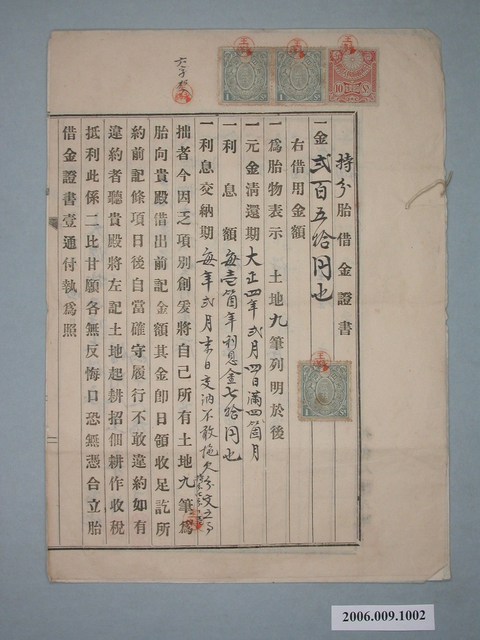 持分胎借金證書
一金弍百五拾円也
右借用金額
一為胎物表示　土地九筆列明於後
一元金清還期大正四年弍月四日滿四箇月
一利息額每壱箇年利息金七拾円也
一利息交納期每年弍月末日交納不敢拖欠分文立句
拙者今因乏項別創爰將自己所有土地九筆為
胎向貴殿借出前記金額其金即日領收足訖所
約前記條項日後自當確守履行不敢違約如有
違約者聽貴殿將左記土地起耕招佃耕作收稅
抵利此係二比甘願各無反悔口恐無憑合立胎
借金證書壹通付執為照
10
2006.009.1002